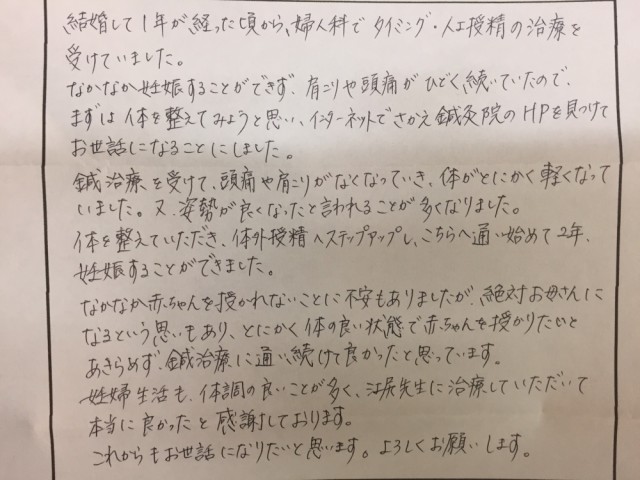 結婚して1年が経った頃から、婦人科でタイミング・人工授精の治療を
受けていました。
なかなか妊娠することができず、肩こりや頭痛がひどく続いていたので、
まずは体を整えてみようと思い、インターネットでさかえ鍼灸院のHPを見つけて
お世話になることにしました。
鍼治療を受けて、頭痛や肩こりがなくなっていき、体がとにかく軽くなって
いました。又、姿勢が良くなったと言われることが多くなりました。
体を整えていただき、体外授精へステップアップし、こちらへ通い始めて2年、
妊娠することができました。
なかなか赤ちゃんを授かれないことに不安もありましたが、絶対お母さんに
なるという思いもあり、とにかく体の良い状態で赤ちゃんを授かりたいと
あきらめず、鍼治療に通い続けて良かったと思っています。
妊婦生活も、体調の良いことが多く、江尻先生に治療していただいて
本当に良かったと感謝しております。
これからもお世話になりたいと思います。よろしくお願いします。